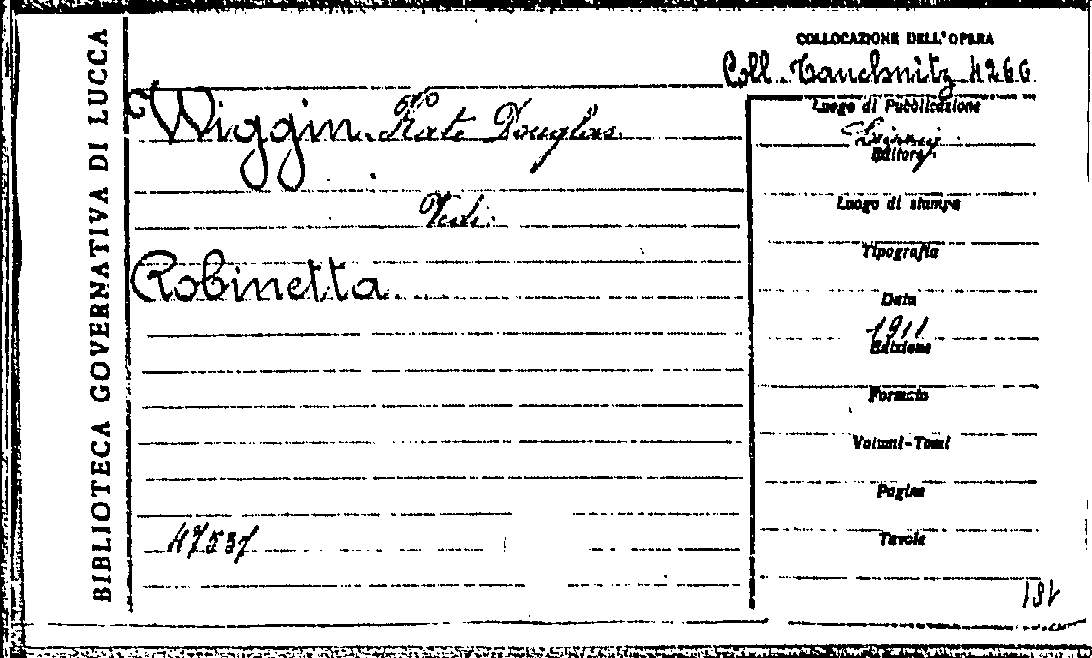 BIBLIOTECA GOVERNATIVA DI LUCCA
COLLOCAZIONE DELL'OPERA
Coll. Tauchnitz 4266
Wiggin Kate Douglas
Vedi:
Robinetta
47537
Luogo di Pubblicazione
Editore
Luogo di stampa
Tipografia
Data
1911
Edizione
Formato
Volumi-Tomi
Pagine
Tavole